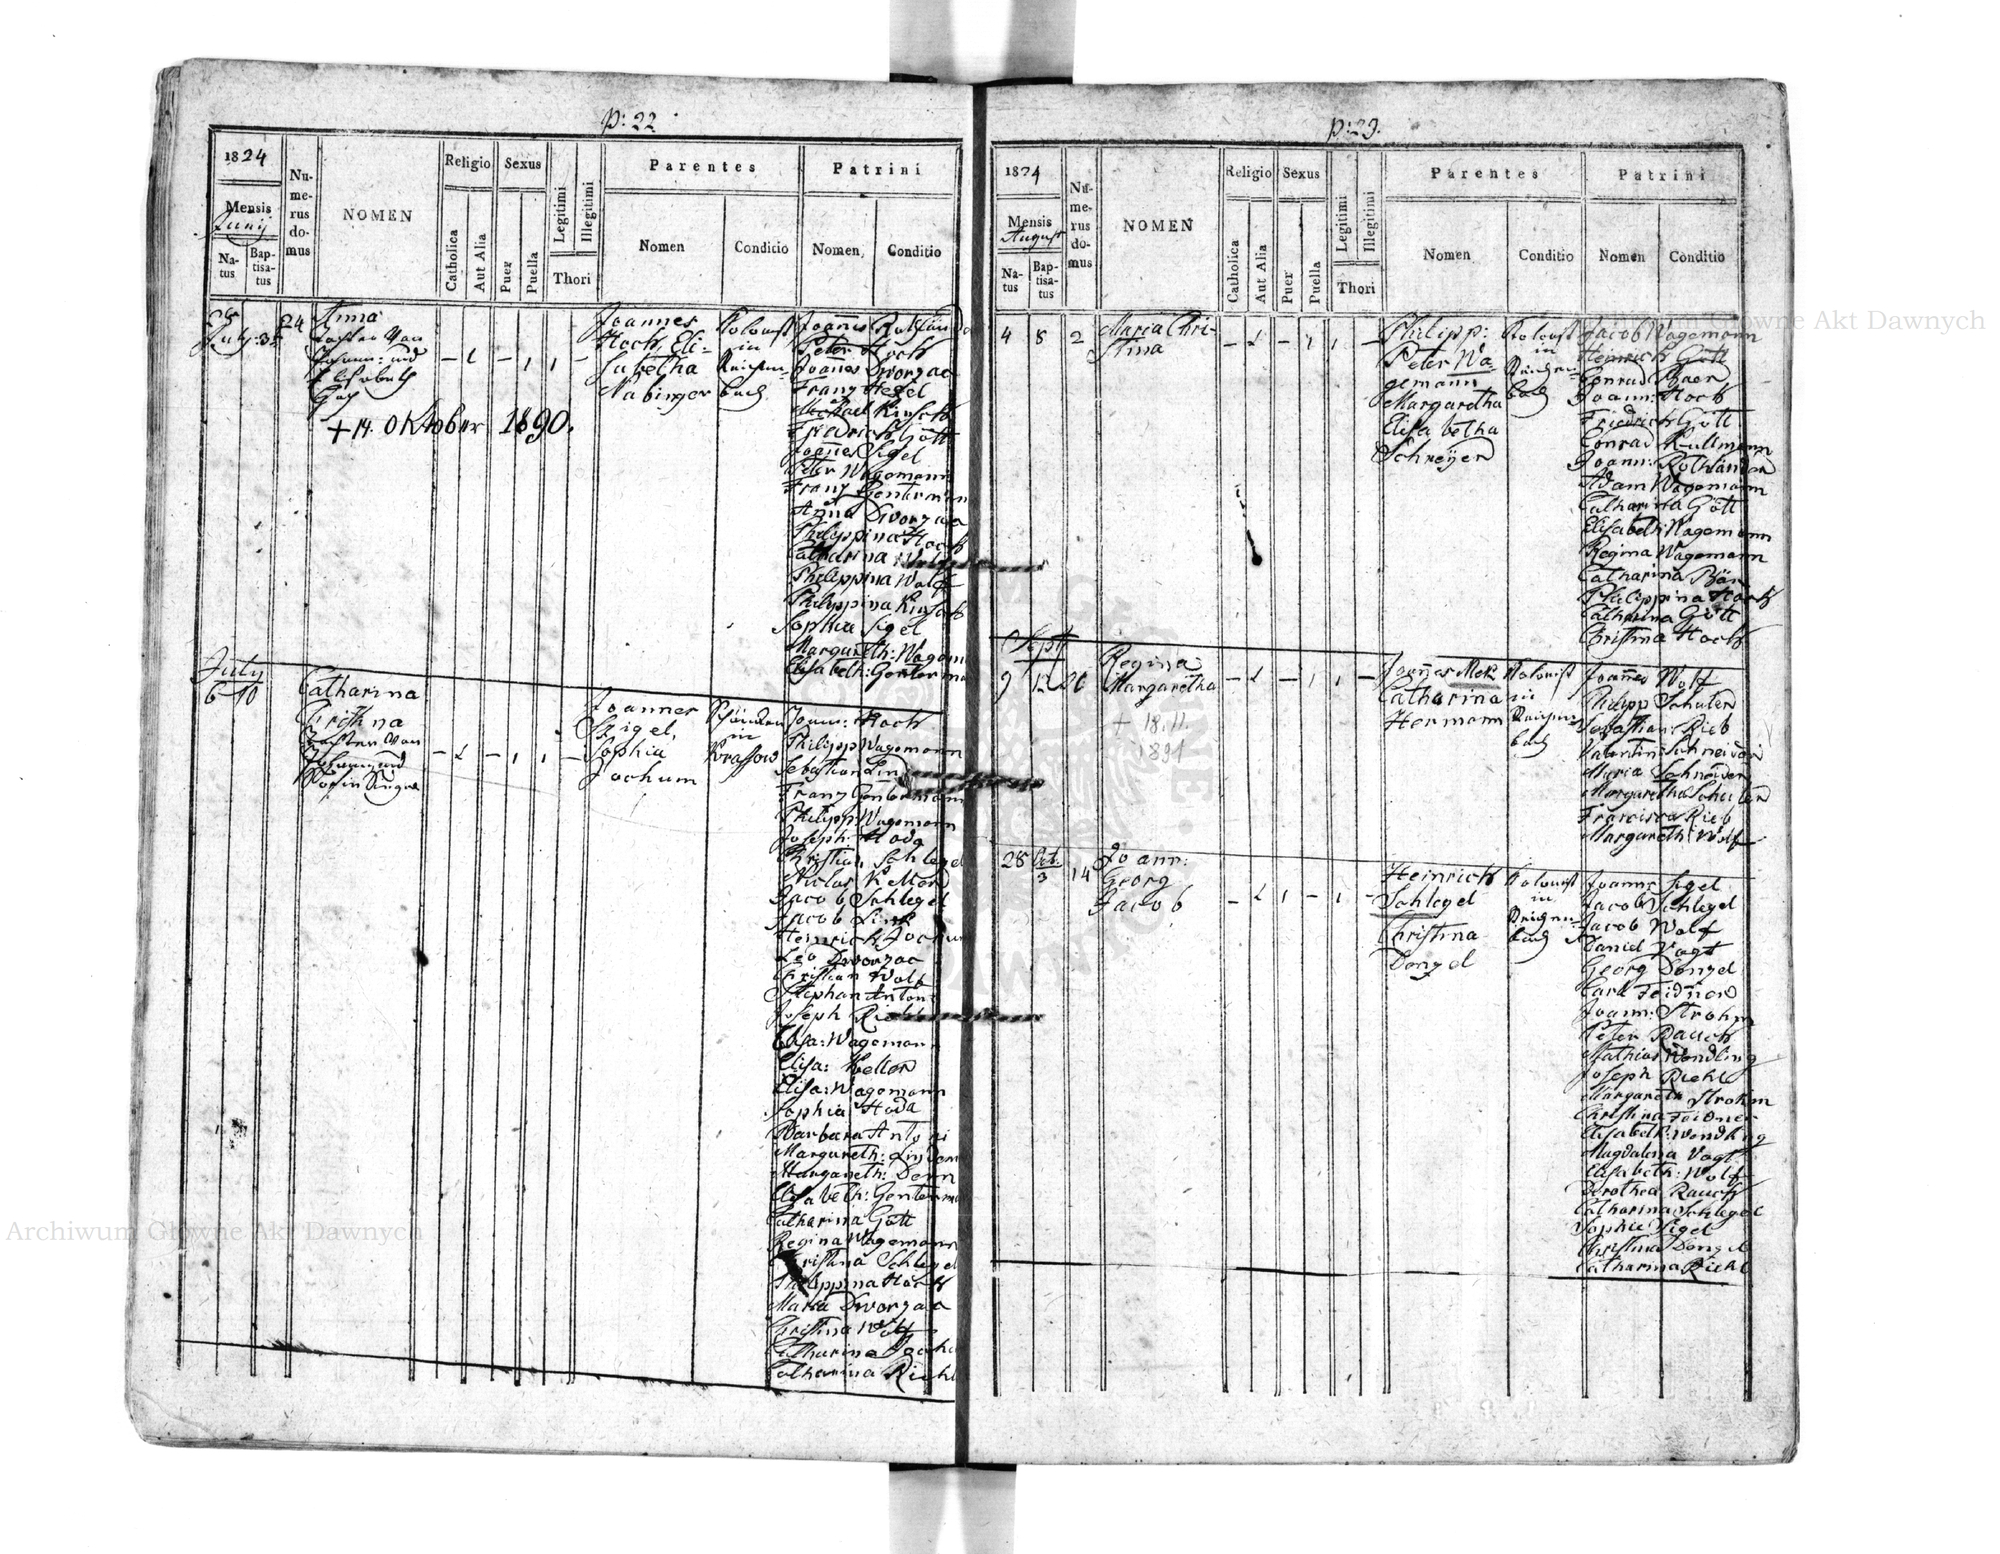 p: 22
1824
Mensis
Junij
Na-
tus
Bap-
tisa-
tus
Nu-
me-
rus
do-
mus
NOMEN
Religio
Catholica
Aut Alia
Sexus
Puer
Puella
Legitimi
Illegitimi
Thori
Parentes
Nomen
Conditio
Patrini
Nomen
Conditio
24
Anna
Tochter von
Johann: und
Elisabeth
+ 14. Oktober 1890.
Joannes
Hoch, Eli-
sabetha
Nabinger
Kolonist
in
Reichen-
bach
Peter Hoch
Joannes Dworzac
Franz Hegel
Friedrich Gött
Joannes Sigel
Peter Wagemann
Franz Genterman
Anna Dworzaca
Philippina Hoch
Catharina Wolf
Philippina Wolf
Sophia Sigel
Margareth: Wagem
Elisabeth: Genterma
July
6 10
Catharina
Cristina
Tochter von
Johann und
Joannes
Sigel,
Sophia
Jochum
in
Joan: Hoch
Philipp Wagemann
Sebastian Lin
Franz Gentermann
Philipp: Wagemann
Joseph Hoda
Christian Schlegel
Jacob Schlegel
Jacob Link
Heinrich Jochum
Leo Dworzac
Christian Wolf
Stephan Anton
Joseph Riehl
Elisa: Wagemann
Elisa: Keller
Elisa: Wagemann
Sophia Hoda
Barbara Antoni
Margareth: Linden
Margareth: Dern
Elisabeth: Genterma
Catharina Gött
Regina Wagemann
Christina Schlegel
Philippina Hoch
Maria Dworzaca
Christina Wolf
Catharina Jochu
Catharina Riehl
p: 23.
1824
Mensis
August
Na-
tus
Bap-
tisa-
tus
Nu-
me-
rus
do-
mus
NOMEN
Religio
Catholica
Aut Alia
Sexus
Puer
Puella
Legitimi
Illegitimi
Thori
Parentes
Nomen
Conditio
Patrini
Nomen
Conditio
4 8 2
Maria Chri-
stina
Philipp:
Peter Wa-
gemann
Margaretha
Elisabetha
Schreyer
Kolonist
in
Reichen-
bach
Jacob Wagemann
Heinrich Gött
Conrad Baer
Joann: Hoch
Friedrich Gött
Conrad Kullmann
Joann: Rothländer
Adam Wagemann
Catharina Gött
Elisabeth Wagemann
Regina Wagemann
Catharina Bär
Philippina Hoch
Catharina Gött
Christina Hoch
Sept
9 12 20
Regina
Margaretha
+ 18.11.
1891
Joannes Mek
Catharina
Hermann
Kolonist
in
Reichen-
bach
Joannes Wolf
Philipp Schuler
Sebastian: Rieb
Valentin: Schneider
Maria Schneider
Margaretha Schuler
Francisca Rieb
Margareth: Wolf
28 Oct: 3 14
Joann:
Georg
Jacob
Heinrich
Schlegel
Christina
Denzel
Kolonist
in
Reichen-
bach
Joannes Sigel
Jacob Schlegel
Jacob Wolf
Daniel Vogt
Georg Denzel
Carl Feidner
Joann: Strohm
Peter Rauch
Mathias Wendling
Joseph Riehl
Margareth Strohm
Christina Feidner
Elisabeth: Wendling
Magdalena Vogt
Elisabeth: Wolf
Dorothea Rauch
Catharina Schlegel
Sophia Sigel
Christina Denzel
Catharina Riehl
Archiwum Główne Akt Dawnych
Archiwum Główne Akt Dawnych